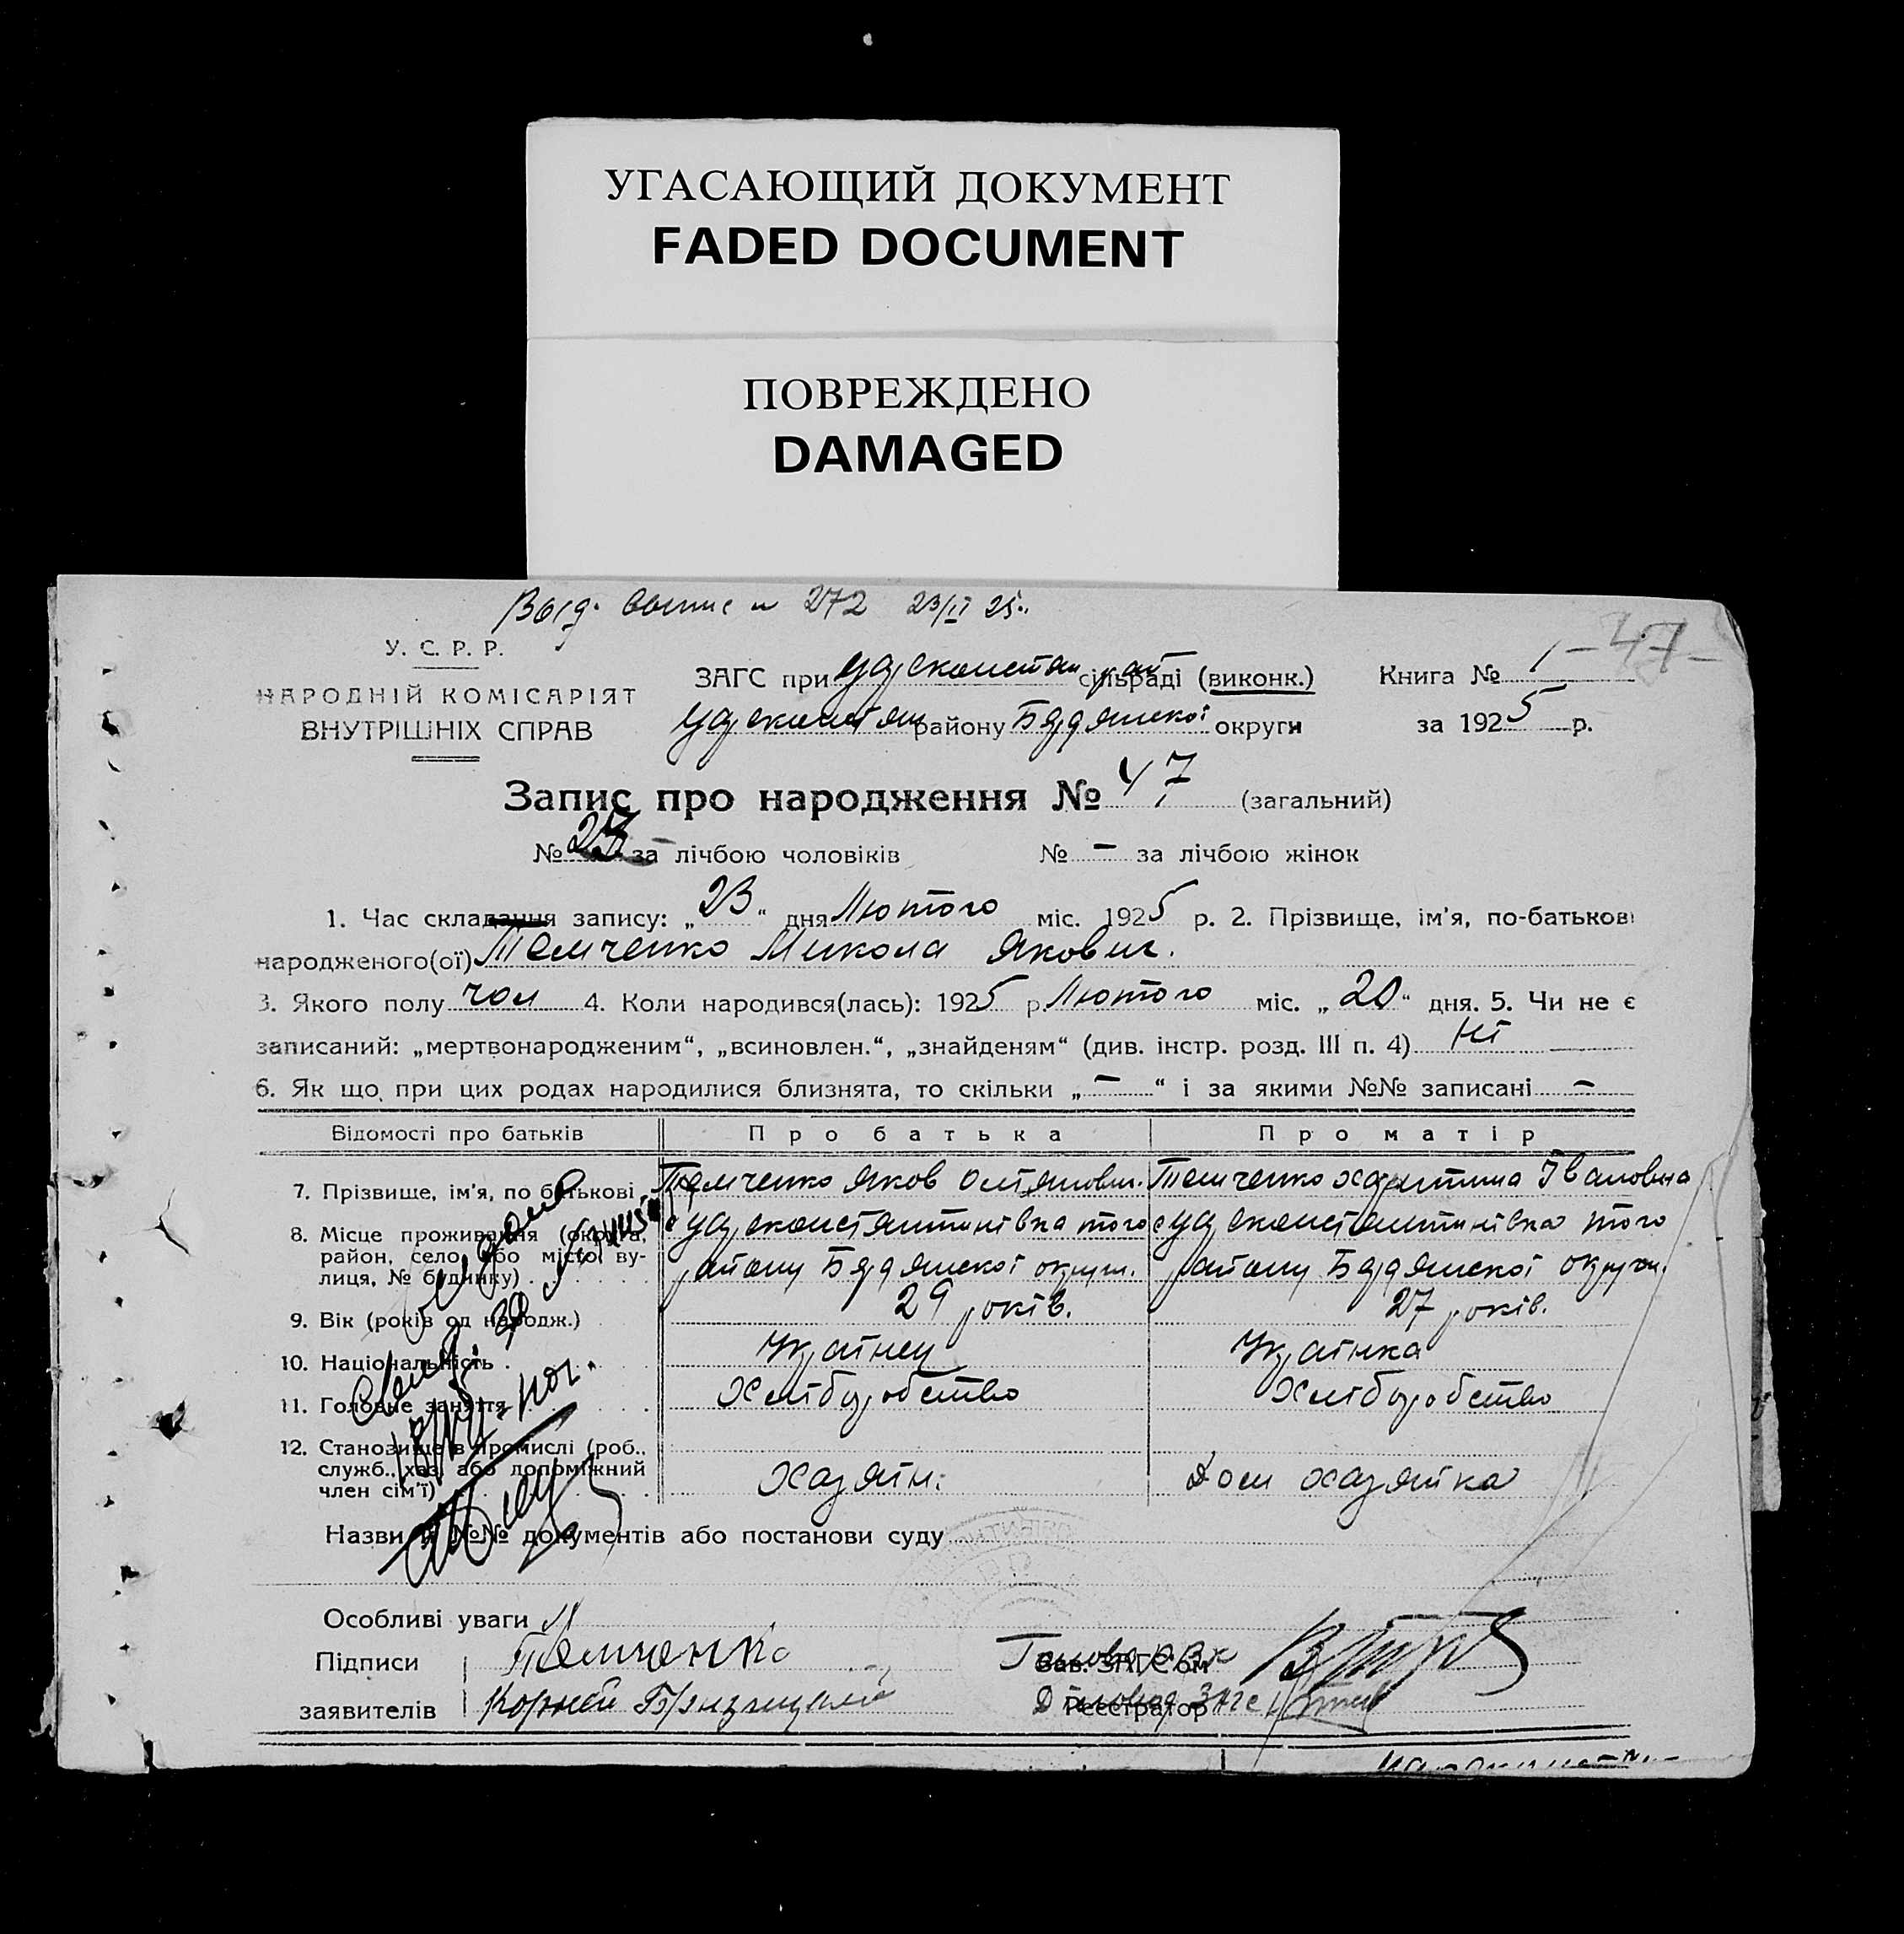 УГАСАЮЩИЙ ДОКУМЕНТ
FADED DOCUMENT
ПОВРЕЖДЕНО
DAMAGED
272 23/II 25
У. С. Р. Р.
НАРОДНІЙ КОМІСАРІЯТ
ВНУТРІШНІХ СПРАВ
ЗАГС при сільраді (виконк.)
району Бердянської округи
Книга № 1
- 47 -
за 1925 р.
Запис про народження № 47 (загальний)
№ за лічбою чоловіків № – за лічбою жінок
1. Час складання запису: „23“ дня Лютого міс. 1925 р. 2. Прізвище, ім'я, по-батькові
народженого(ої) Темченко Микола Якович.
3. Якого полу чол 4. Коли народився(лась): 1925 р. Лютого міс. „20“ дня. 5. Чи не є
записаний: „мертвонародженим“, „всиновлен.“, „знайденям“ (див. інстр. розд. III п. 4) ні
6. Як що при цих родах народилися близнята, то скільки „–“ і за якими №№ записані –
Відомості про батьків Про батька Про матір
7. Прізвище, ім'я, по батькові Темченко Яков Темченко Харитина Івановна
8. Місце проживання (округа, того того
район, село або місто, ву- району Бердянської округи. району Бердянської округи.
лиця, № будинку)
9. Вік (років од народж.) 29 років. 27 років.
10. Національність Українец Українка
11. Головне заняття Хліборобство Хліборобство
12. Становище в промислі (роб.,
служб., хаз. або допоміжний Хазяїн. Дом хазяйка
член сім'ї)
Назви й №№ документів або постанови суду
Особливі уваги
Підписи Темченко Голова РВК
Зав. ЗАГС'ом
заявителів Корній Діловод ЗАГС
Реєстратор